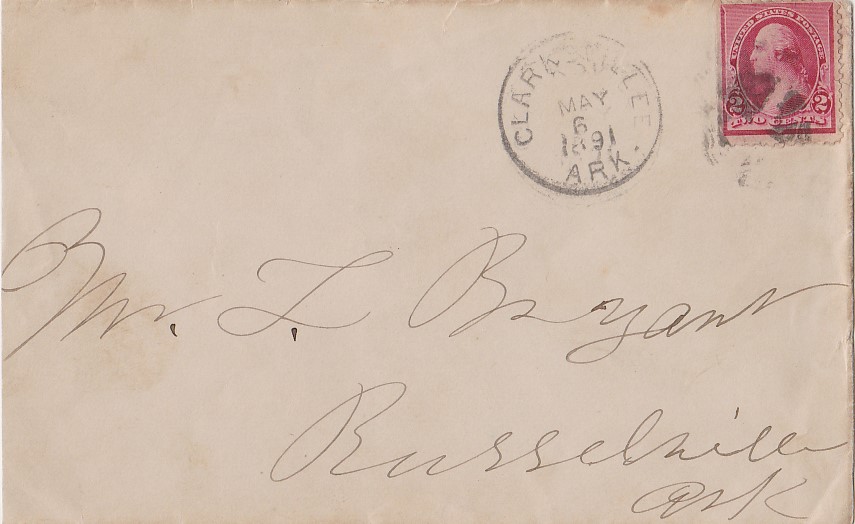 CLARKSVILLE
MAY
6
1891
ARK.
UNITED STATES POSTAGE
2 2
TWO CENTS
Mr. L. Bryant
Russelville
Ark